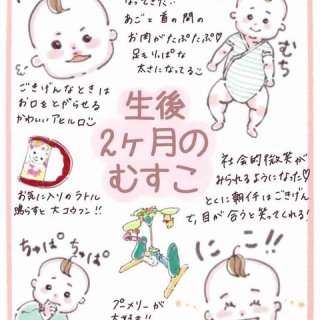 なってきた♡
あごと首の間の
お肉がたぷたぷ♡
足もりっぱな
太さになってる
むち
ごきげんなときは
お口をとがらせる
かわいいアヒル口
生後
2ヶ月の
むすこ
お気に入りのラトル
鳴らすと大コウフン!!
社会的微笑が
みられるようになった♡
とくに朝イチはごきげん
で、目が合うと笑ってくれる!
ちゅぱ
ちゅぱ
にこっ!!
プーメリーが
大好き!!